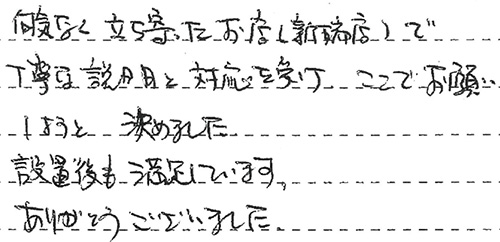 何気なく立ち寄ったお店(新瑞店)で
丁寧な説明と対応を受け、ここでお願い
しようと決めました
設置後も満足しています。
ありがとうございました。